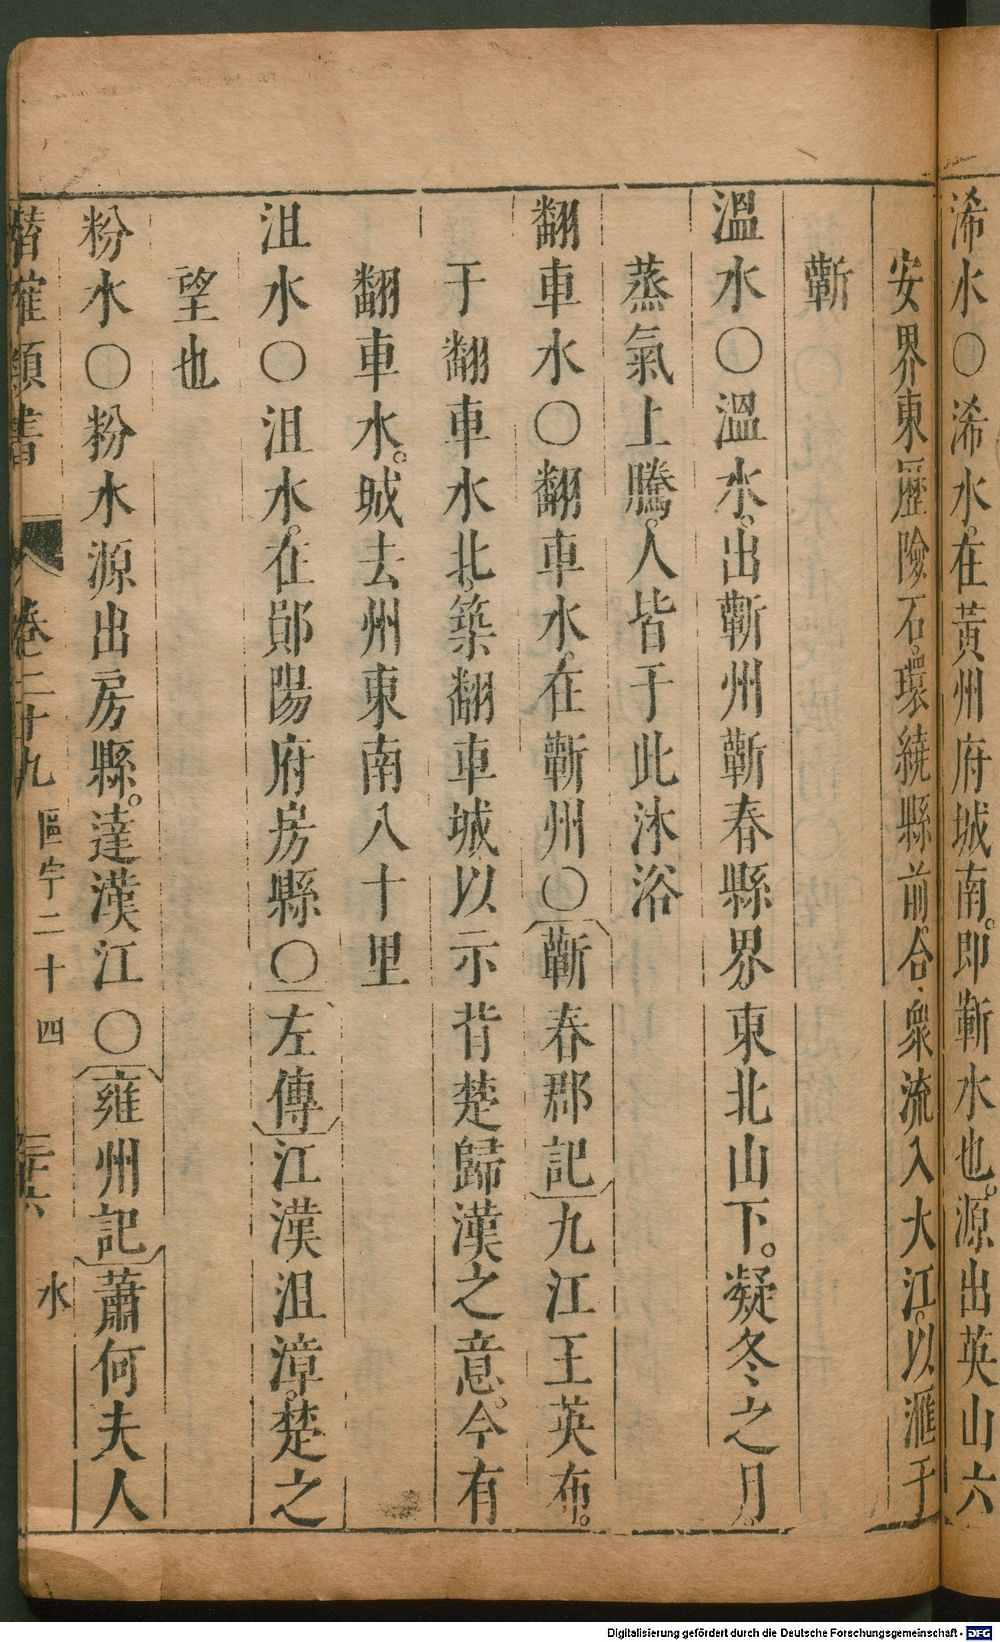 浠水〇浠水。在黃州府城南。即蘄水也。源出英山六
安界東歷險石。環繞縣前。合衆流入大江。以滙于
蘄
溫水〇溫水。出蘄州蘄春縣界。東北山下。凝冬之月。
蒸氣上騰。人皆于此沐浴
翻車水〇翻車水。在蘄州〇蘄春郡記九江王英布。
于翻車水北。築翻車城以示背楚歸漢之意。今有
翻車水。城去州東南八十里
沮水〇沮水。在鄖陽府房縣〇左傳江漢沮漳。楚之
望也
粉水〇粉水源出房縣。達漢江〇雍州記蕭何夫人
潛確類書 卷二十九 區宇二十四 水
Digitalisierung gefördert durch die Deutsche Forschungsgemeinschaft - DFG